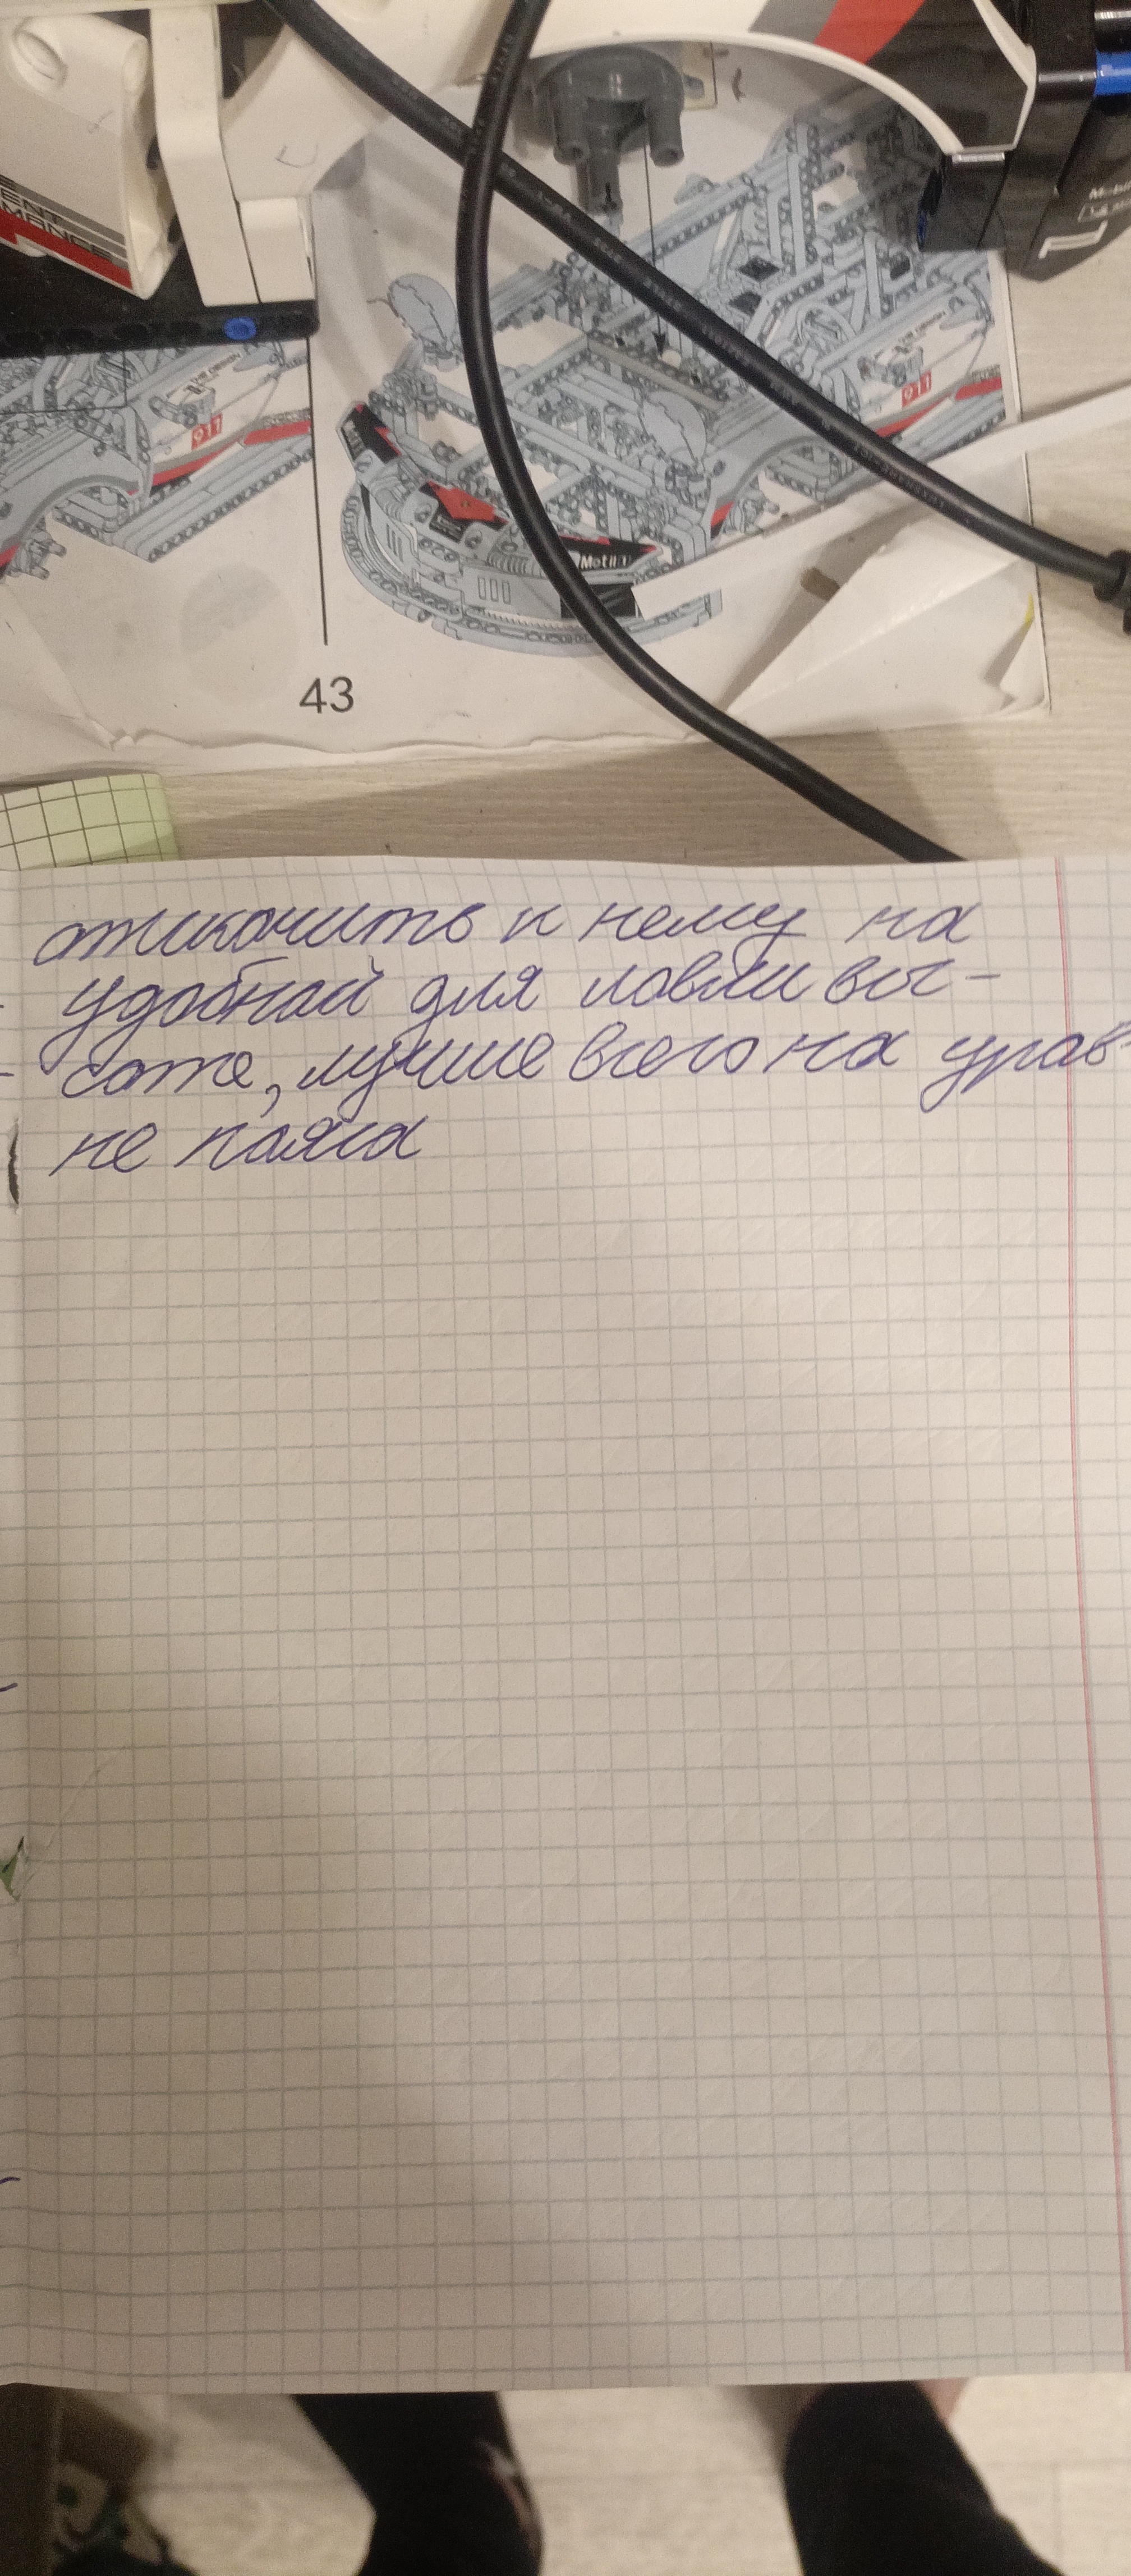 ENT
MANCE
Mobil
911
911
Mobil 1
43
отскочить к нему на
удобной для ловли вы-
соте, лучше всего на уров-
не пояса